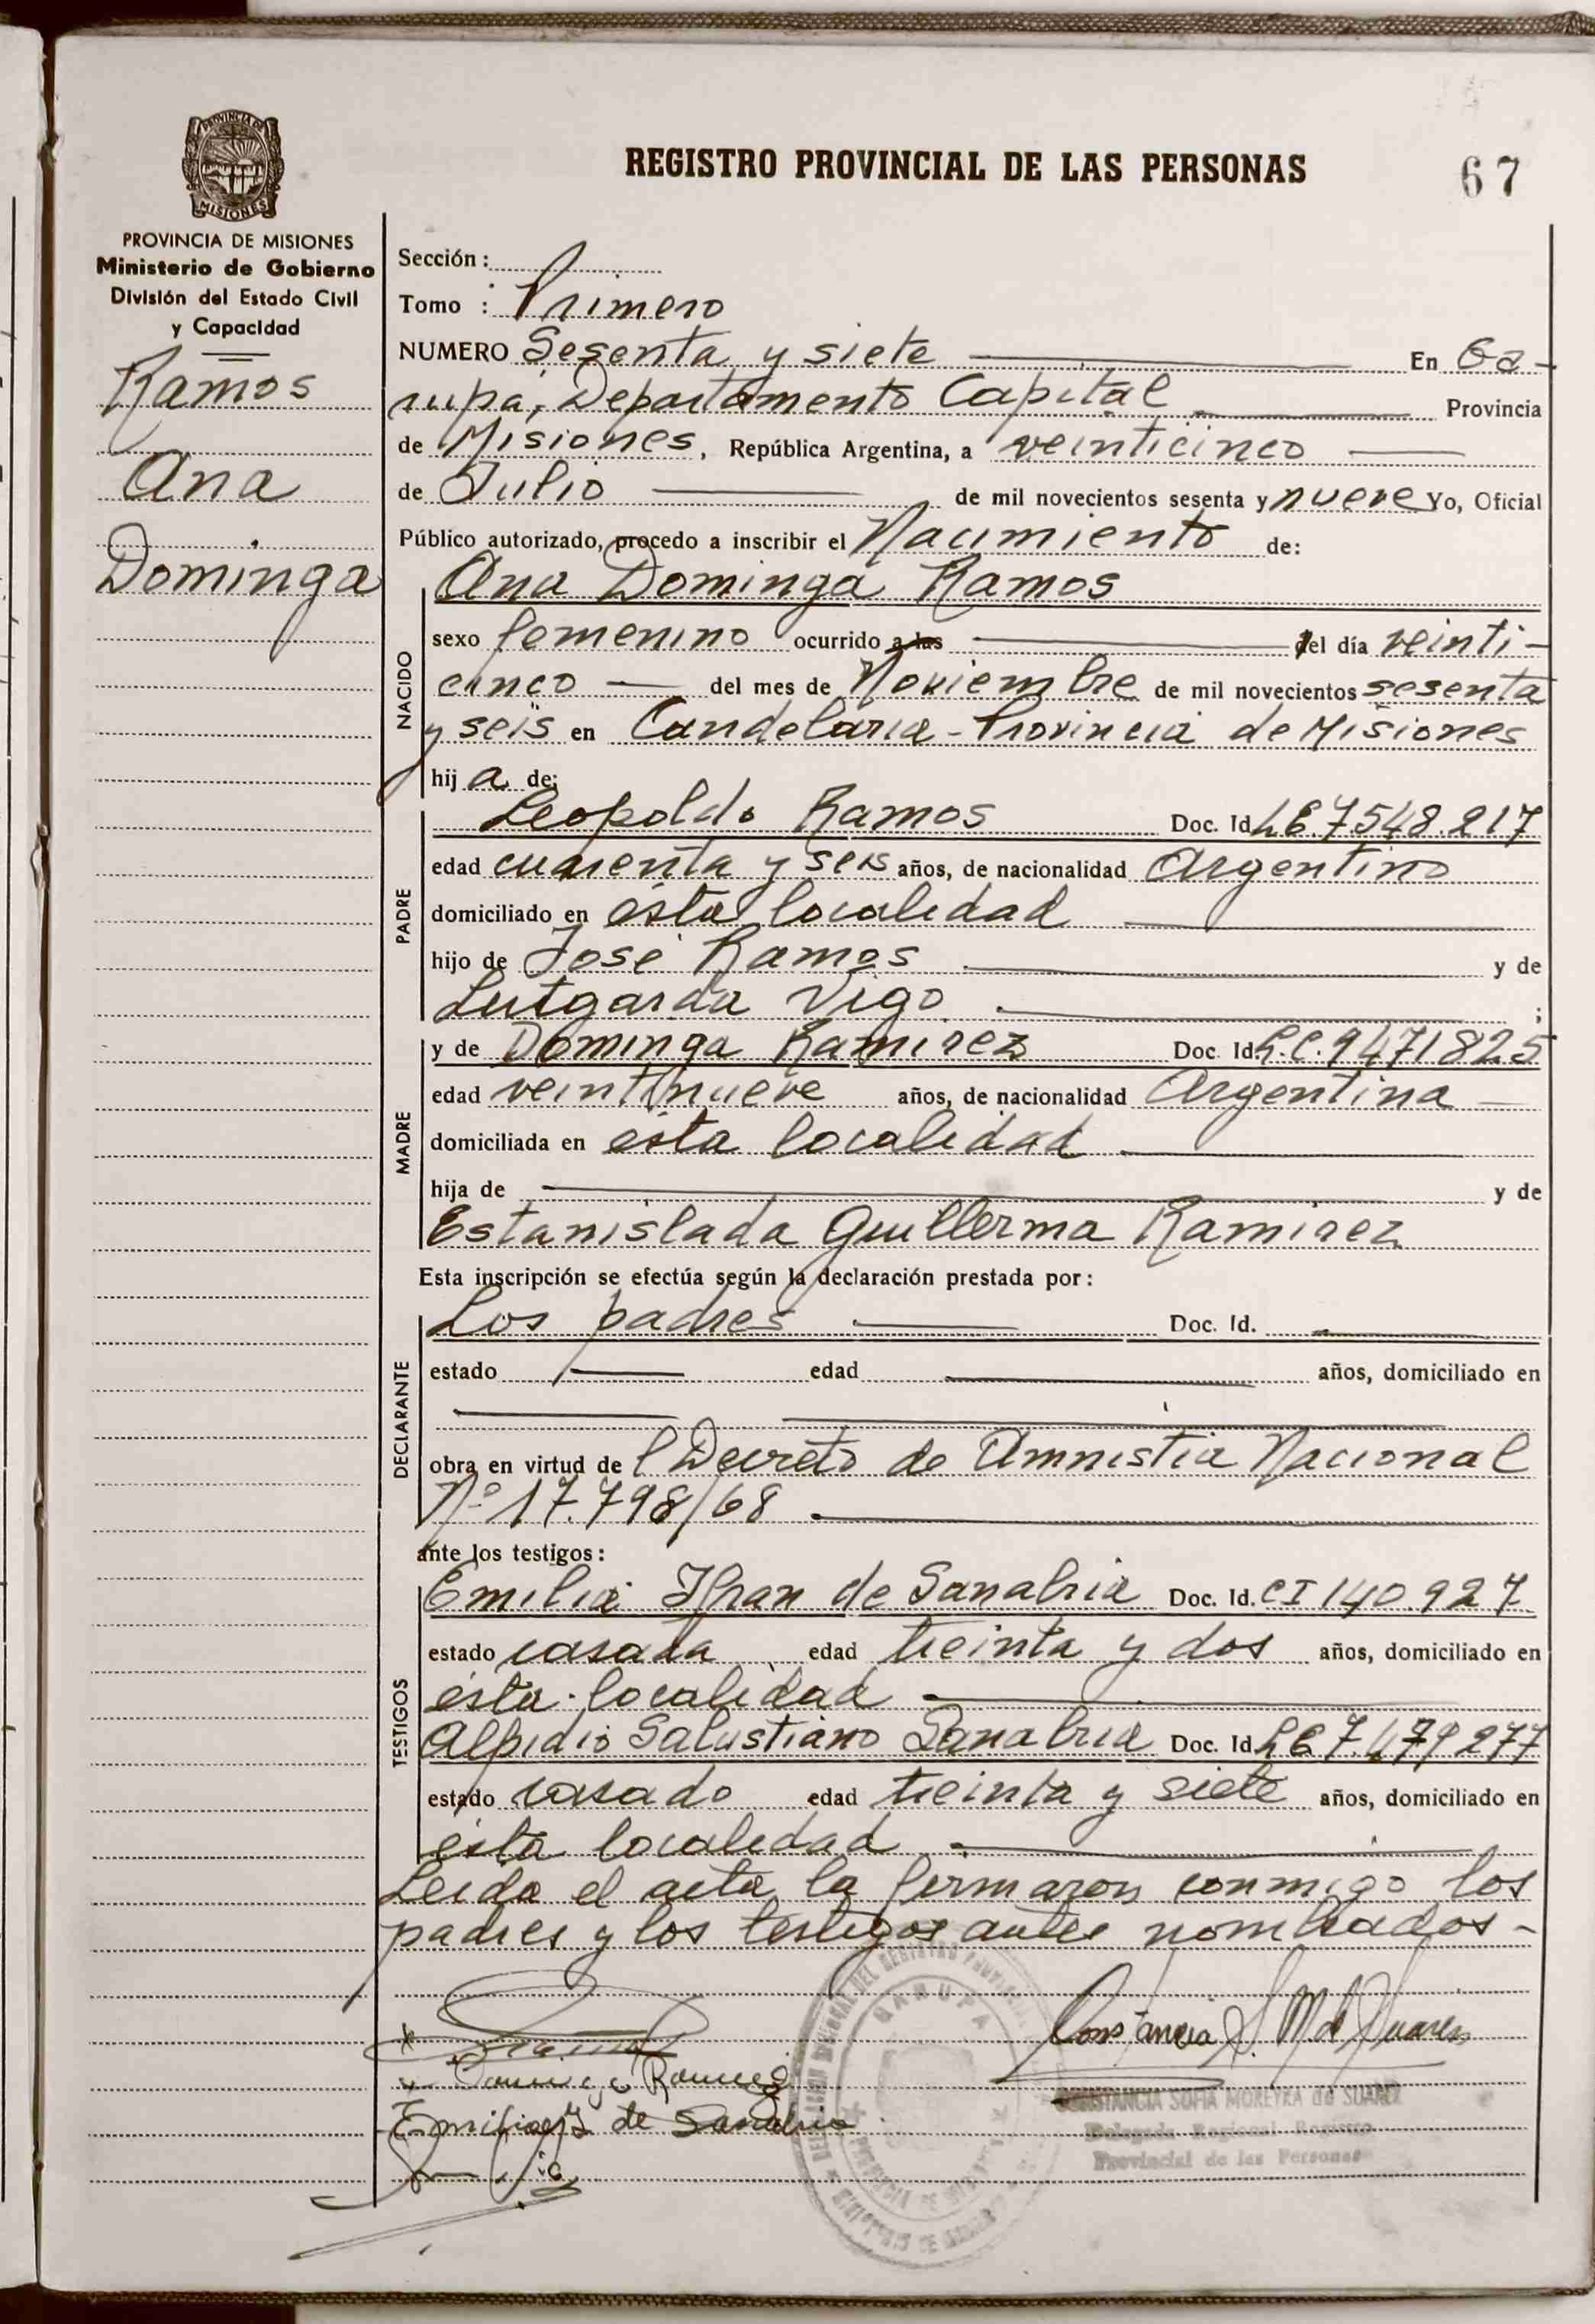 REGISTRO PROVINCIAL DE LAS PERSONAS
67
PROVINCIA DE MISIONES
PROVINCIA DE MISIONES
Ministerio de Gobierno
División del Estado Civil
y Capacidad
Ramos
Ana
Dominga
Sección :
Tomo : Primero
NUMERO Sesenta y siete En Ga-
rupá, Departamento Capital Provincia
de Misiones, República Argentina, a veinticinco
de Julio de mil novecientos sesenta y nueve Yo, Oficial
Público autorizado, procedo a inscribir el Nacimiento de:
NACIDO
Ana Dominga Ramos
sexo femenino ocurrido a las del día veinti-
cinco del mes de Noviembre de mil novecientos sesenta
y seis en Candelaria - Provincia de Misiones
hija de:
PADRE
Leopoldo Ramos Doc. Id. LE.7548.217
edad cuarenta y seis años, de nacionalidad Argentino
domiciliado en ésta localidad
hijo de José Ramos y de
Lutgarda Vigo ;
MADRE
y de Dominga Ramirez Doc. Id. L.C.9471825
edad veintinueve años, de nacionalidad Argentina
domiciliada en ésta localidad
hija de y de
Estanislada Guillerma Ramirez
Esta inscripción se efectúa según la declaración prestada por:
DECLARANTE
Los padres Doc. Id.
estado edad años, domiciliado en
obra en virtud del Decreto de Amnistia Nacional
Nº 17.798/68
ante los testigos:
TESTIGOS
Emilia de Sanabria Doc. Id. CI 140.927
estado casada edad treinta y dos años, domiciliado en
ésta localidad
Alpidio Salustiano Sanabria Doc. Id LE 7.479277
estado casado edad treinta y siete años, domiciliado en
ésta localidad
Leida el acta la firmaron conmigo los
padres y los testigos antes nombrados-
Constancia S. M de Suarez
Ramirez
Emilia de Sanabria
GARUPA
CONSTANCIA SOFIA MOREYRA de SUAREZ
Delegada Regional Registro
Provincial de las Personas